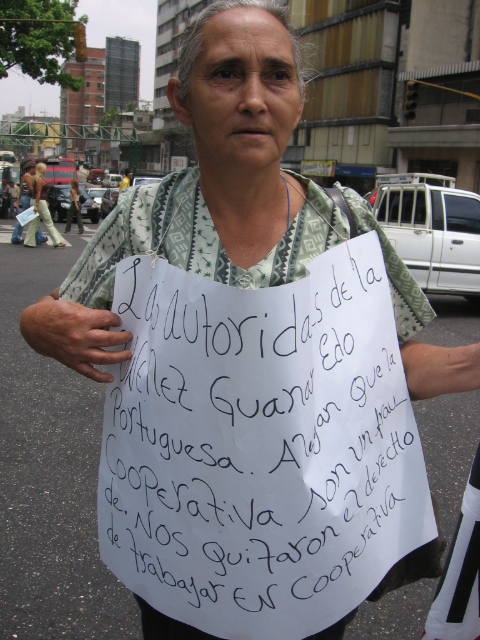 Las autoridas de la
UNellez Guanar Edo
Portuguesa. Alegan que la
Cooperativa son un frau
de. Nos quitaron el derecho
de trabajar en cooperativa